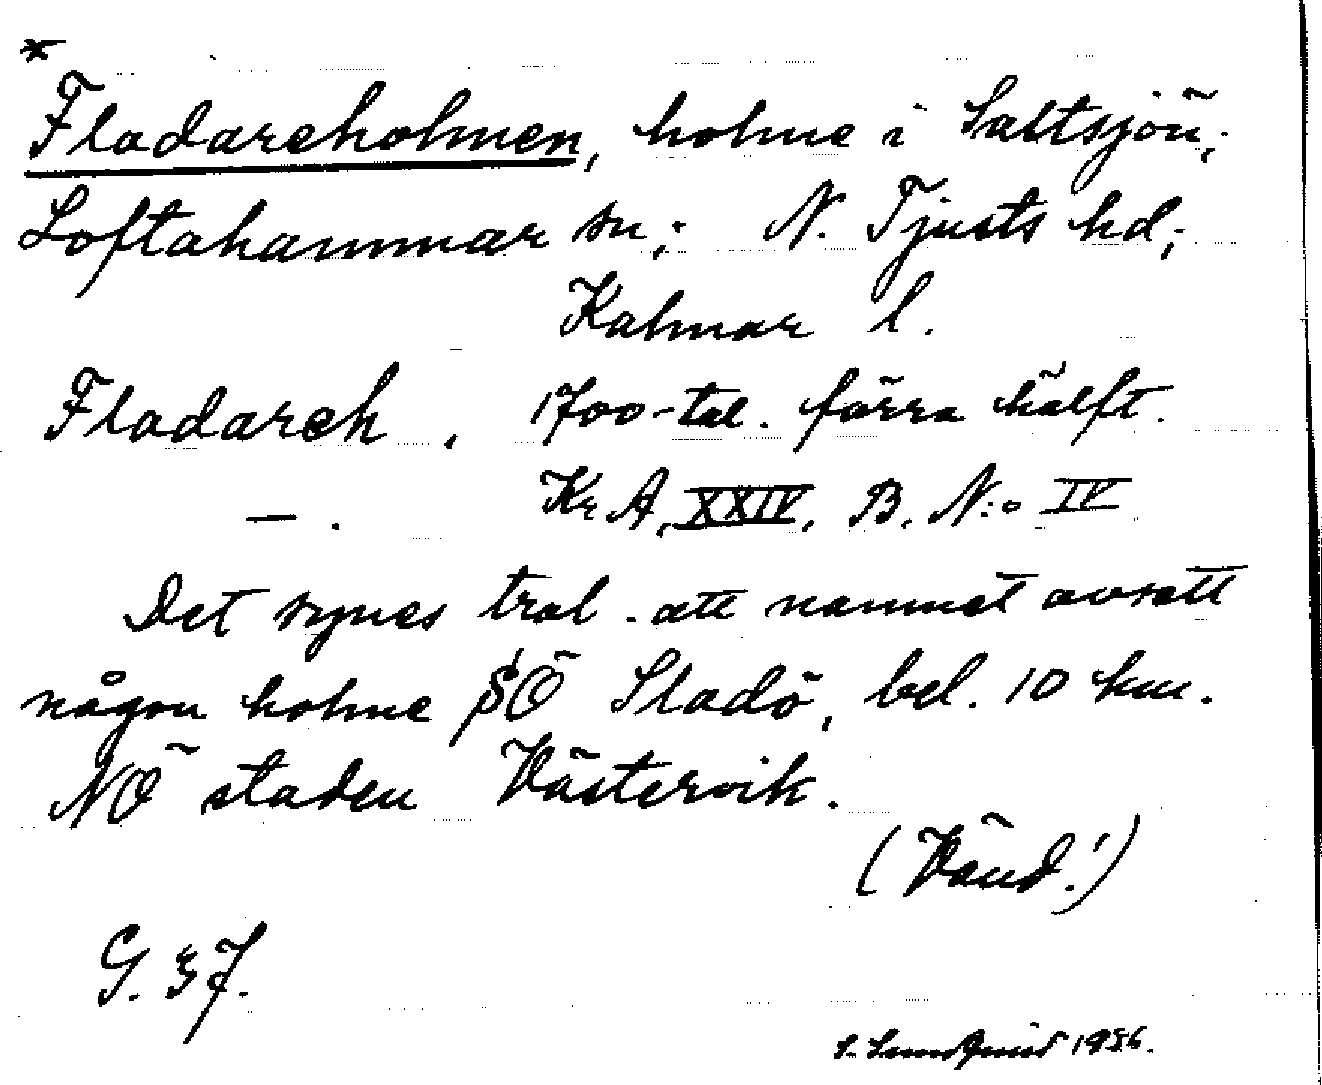 *
Fladareholmen, holme i Saltsjön;
Loftahammar sn; N. Tjusts hd;
Kalmar l.
Fladareh. 1700-tal. förra hälft.
— . Kr A, XXIV, B. N:o IV
Det synes trol. att namnet avsett
någon holme SÖ Sladö, bel. 10 km.
NÖ staden Västervik.
(Vänd!)
G. 37.
S. Lundquist 1936.